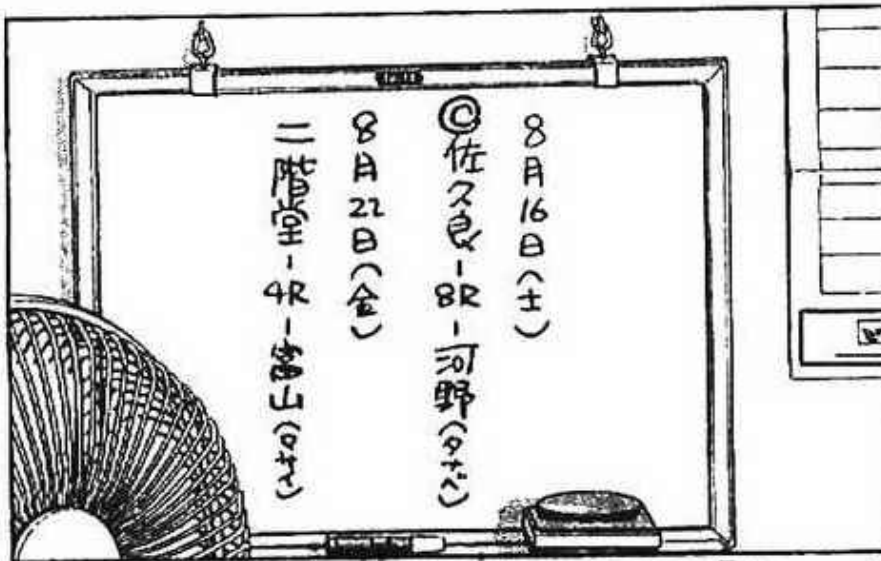 8月16日(土)
Ⓒ佐久良-8R-河野(タナベ)
8月22日(金)
二階堂-4R-山()